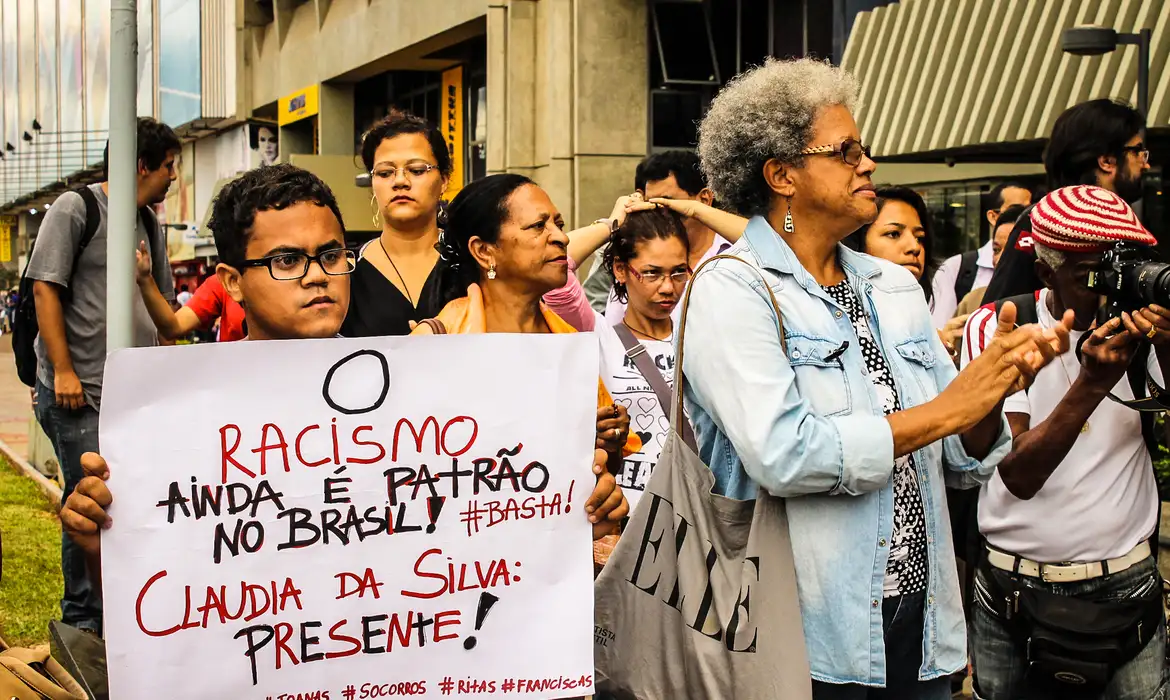 O
RACISMO
AINDA É PATRÃO
NO BRASIL! #BASTA!
CLAUDIA DA SILVA:
PRESENTE!
#SOCORROS #RITAS #FRANCISCAS
ELLE